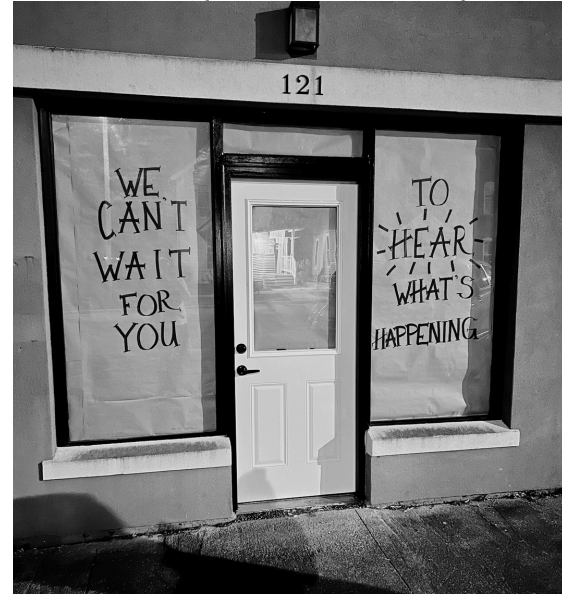 121
WE
CAN'T
WAIT
FOR
YOU
TO
HEAR
WHAT'S
HAPPENING